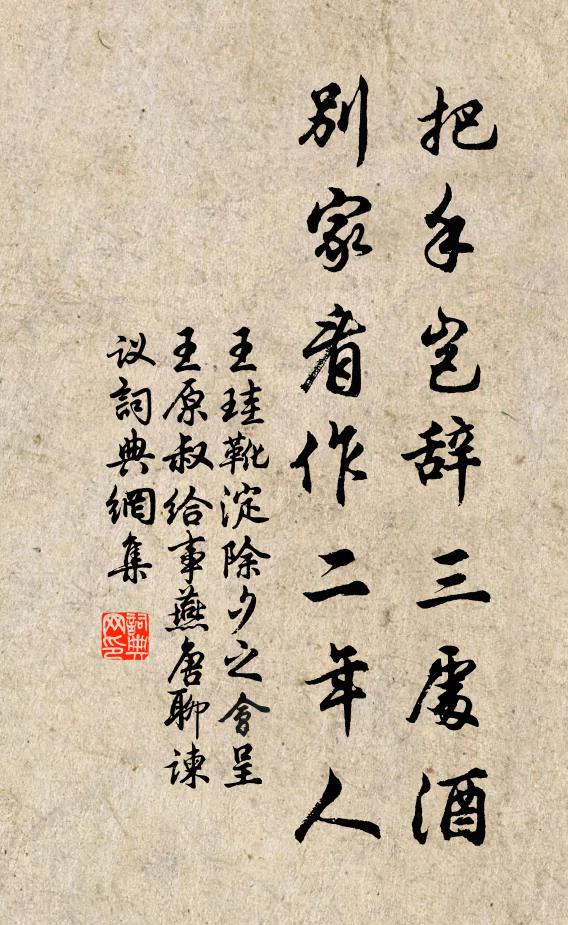 把手岂辞三處酒
别家看作二年人
王珪靴淀除夕之會呈
王原叔给事燕唐聊谏
议詞典網集
詞典
网印